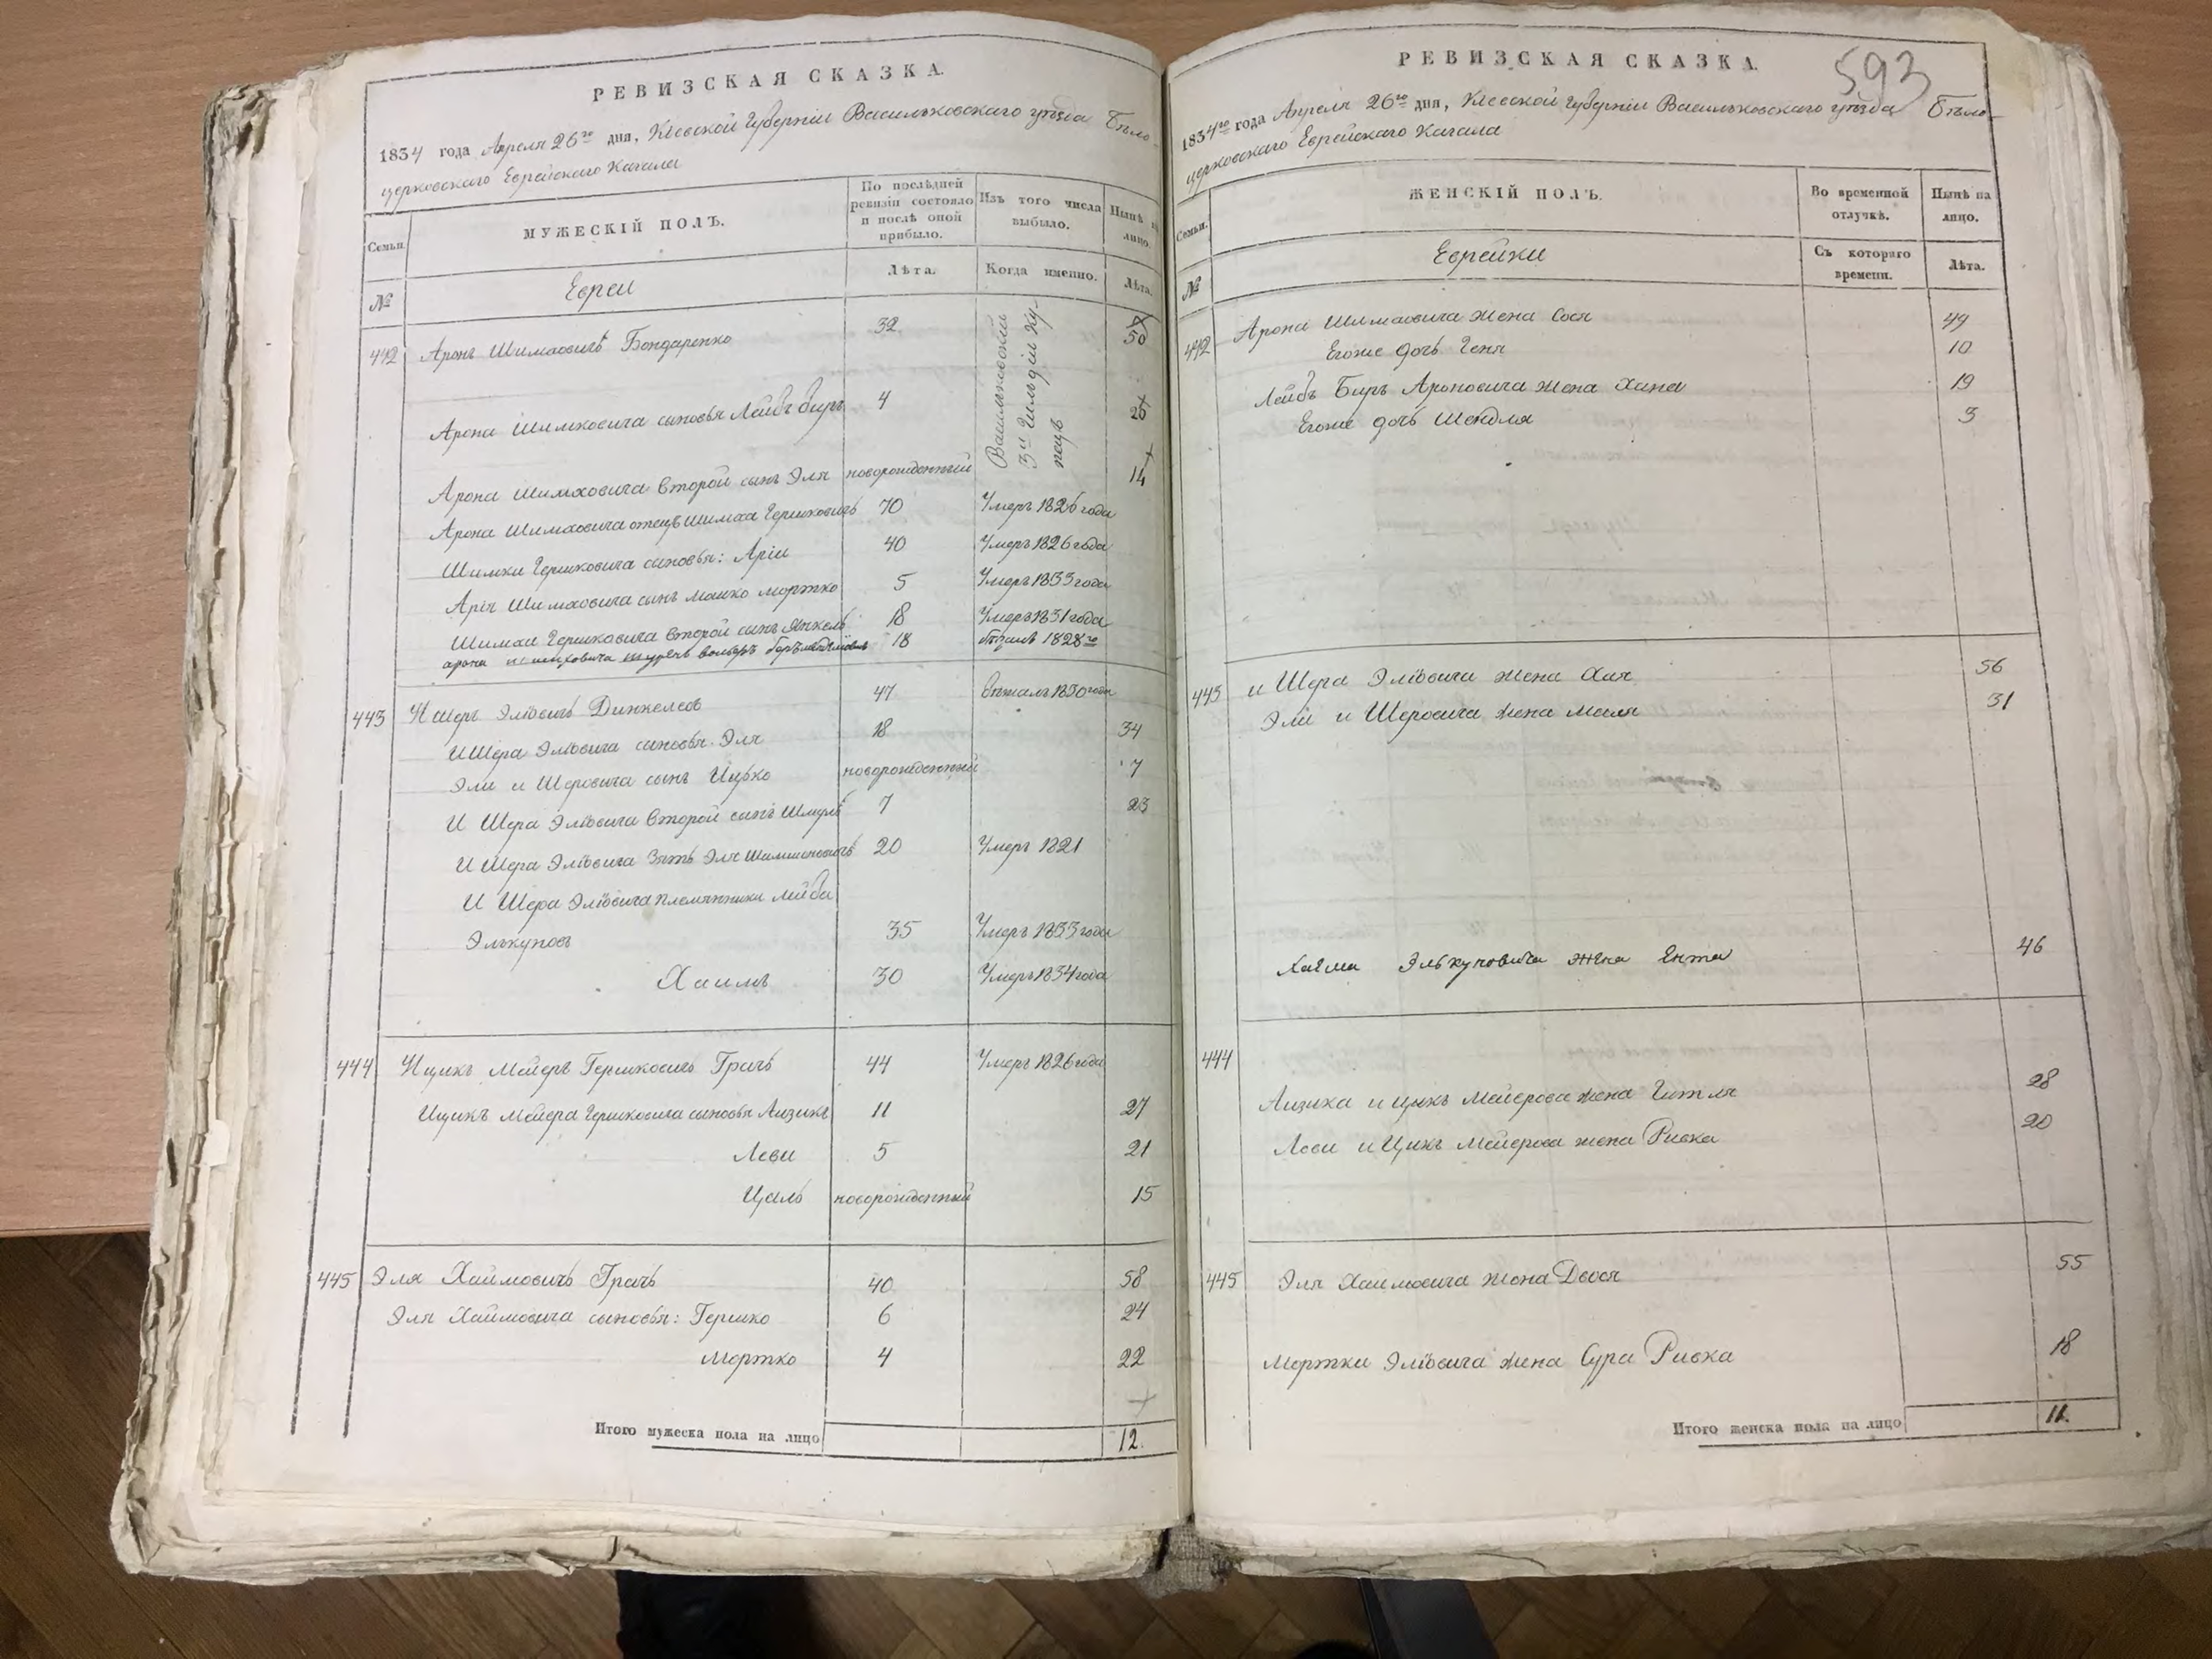 РЕВИЗСКАЯ СКАЗКА.
1834 года Апреля 26го дня, Кіевской Губерніи Васильковскаго уѣзда Бѣло-
церковскаго Еврейскаго Кагала
Семьи.
МУЖЕСКІЙ ПОЛЪ.
По послѣдней ревизіи состояло и послѣ оной прибыло.
Изъ того числа выбыло.
Нынѣ на лицо.
№
Евреи
Лѣта.
Когда именно.
Лѣта.
442 Аронъ Шимховичъ Бондаренко 32 50
Васильковскій 3й Гильдіи Ку-
пецъ
Арона Шимховича сыновья Лейбъ Беръ 4 20
Арона Шимховича второй сынъ Эля новорожденный 14
Арона Шимховича отецъ Шимха Гершковичъ 70 Умеръ 1826 года
Шимхи Гершковича сыновья: Арія 40 Умеръ 1826 года
Арія Шимховича сынъ Мошко Мортко 5 Умеръ 1833 года
Шимхи Гершковича второй сынъ Янкель 18 Умеръ 1831 года
Арона Шимховича шуринъ 18 1828го
443 И Шеръ Эліовичъ Динкелевъ 47 Бѣжалъ 1830 года
И Шера Эліовича сыновья Эля 18 34
Эли и Шеровича сынъ Ицько новорожденный 7
И Шера Эліовича второй сынъ Шмуль 7 23
И Шера Эліовича Зять Эля Шимшоновичъ 20 Умеръ 1821
И Шера Эліовича племянники Лейба
Элькуновъ 35 Умеръ 1833 года
Хаимъ 30 Умеръ 1834 года
444 Ицикъ Мейеръ Гершковичъ Грачъ 44 Умеръ 1826 года
Ицикъ Мейера Гершковича сыновья Аизикъ 11 27
Леви 5 21
Цаль новорожденный 15
445 Эля Хаймовичъ Грачъ 40 58
Эля Хаймовича сыновья: Гершко 6 24
Мортко 4 22
Итого мужеска пола на лицо 12.
593
РЕВИЗСКАЯ СКАЗКА.
1834го года Апреля 26го дня, Кіевской Губерніи Васильковскаго уѣзда Бѣло-
церковскаго Еврейскаго Кагала
Семьи.
ЖЕНСКІЙ ПОЛЪ.
Во временной отлучкѣ.
Нынѣ на лицо.
№
Еврейки
Съ котораго времени.
Лѣта.
442 Арона Шимховича жена Сося 49
Егоже дочь Геня 10
Лейбъ Беръ Ароновича жена Хана 19
Егоже дочь Шейдля 3
443 и Шера Эліовича жена Хая 56
Эли и Шеровича жена Маля 31
Хаима Элькуновича жена Ента 46
444
Аизика и Цыкъ Мейерова жена Гитля 28
Леви и Цикъ Мейерова жена Ривка 20
445 Эля Хаимовича жена Двося 55
Мортки Эліовича жена Сура Ривка 18
Итого женска пола на лицо 11.